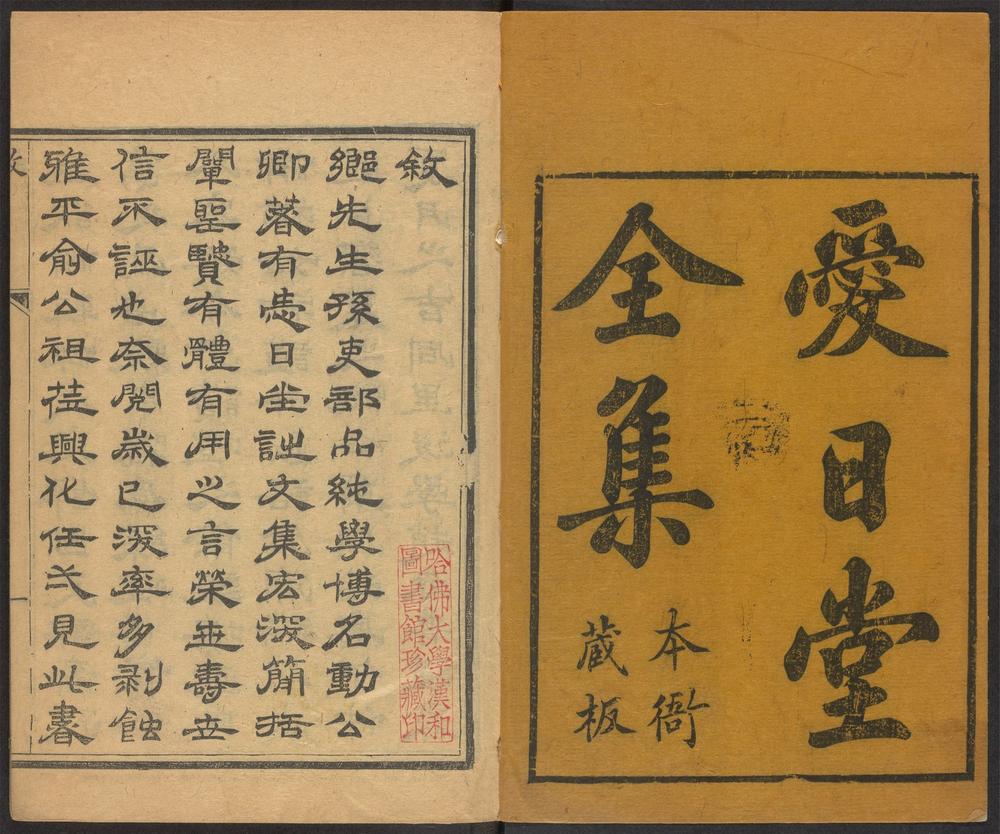 愛日堂
全集
本衙
藏板
敘
鄉先生孫吏部品純學博名動公
卿著有恚日堂詩文集宏深簡括
闡聖賢有體有用之言榮世壽世
信不誣也奈閱歲已深率多剥蝕
雅平俞公祖莅興化任亦見此書
哈佛大學漢和
圖書館珍藏印
敘
一